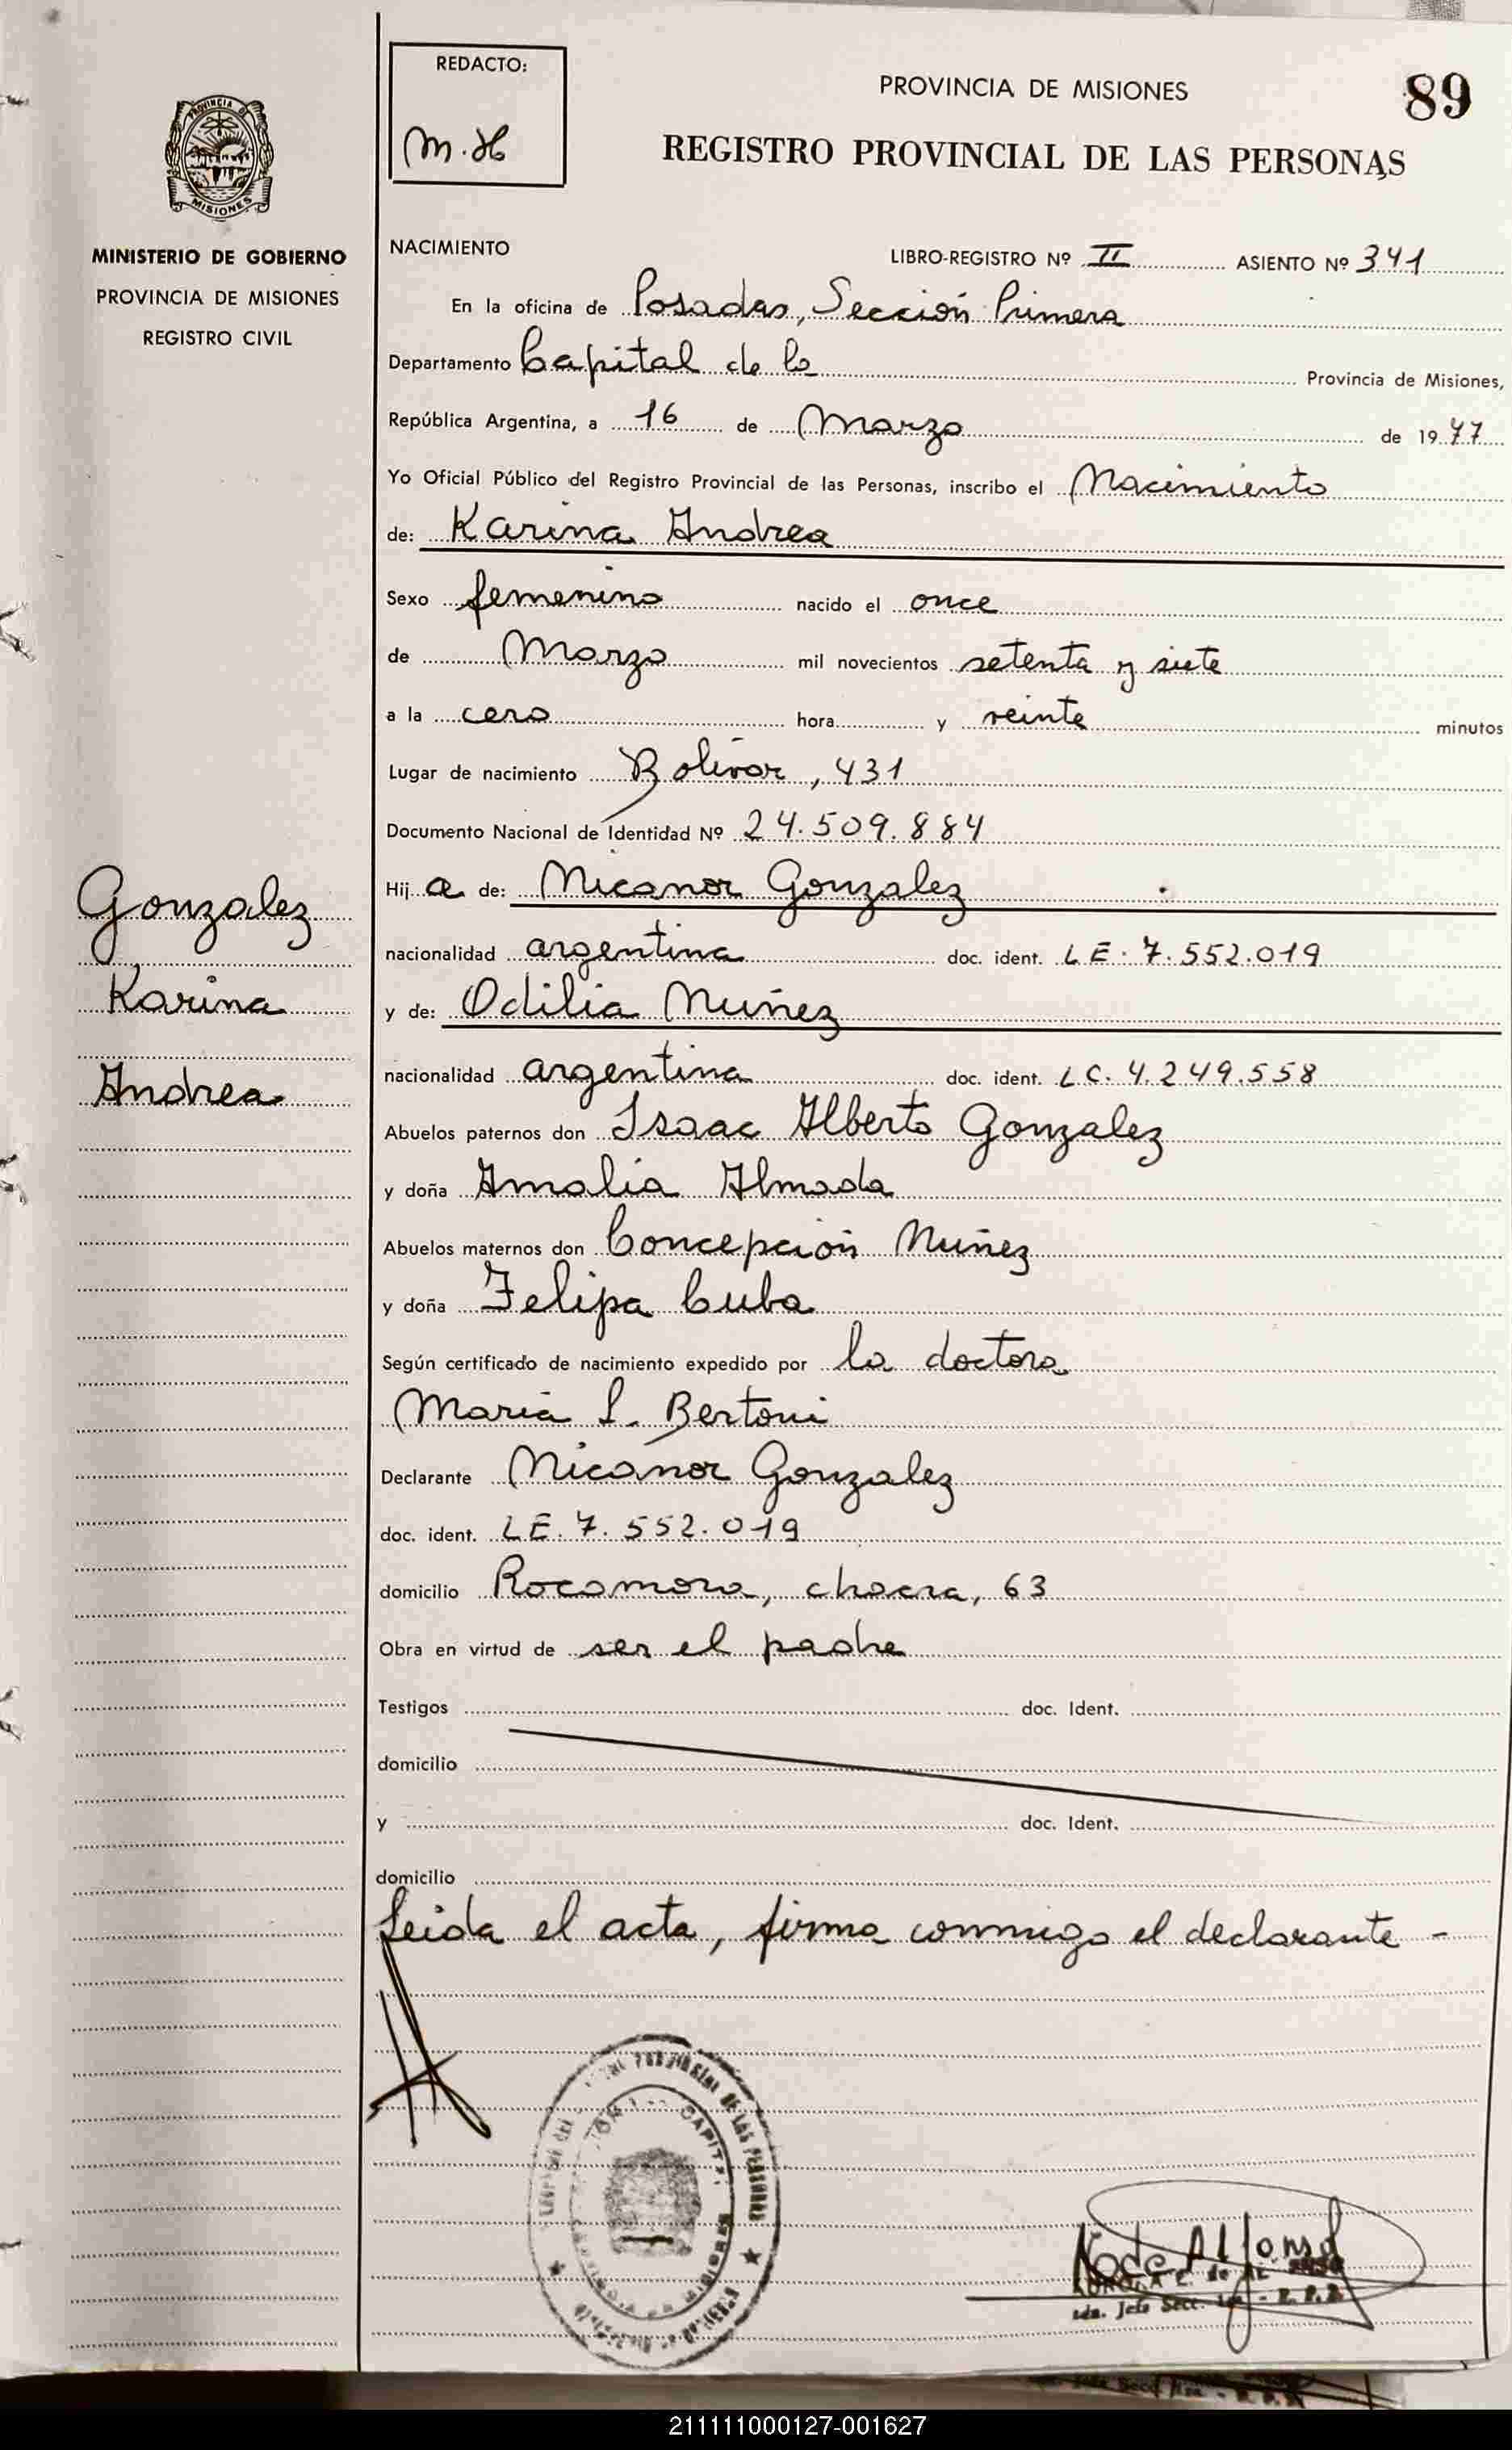 REDACTO:
M.H
PROVINCIA DE MISIONES
89
REGISTRO PROVINCIAL DE LAS PERSONAS
PROVINCIA DE
MISIONES
MINISTERIO DE GOBIERNO
PROVINCIA DE MISIONES
REGISTRO CIVIL
NACIMIENTO LIBRO-REGISTRO Nº II ASIENTO Nº 341
En la oficina de Posadas, Sección Primera
Departamento Capital de la Provincia de Misiones,
República Argentina, a 16 de Marzo de 1977
Yo Oficial Público del Registro Provincial de las Personas, inscribo el Nacimiento
de: Karina Andrea
Sexo femenino nacido el once
de Marzo mil novecientos setenta y siete
a la cero hora y veinte minutos
Lugar de nacimiento Bolívar, 431
Documento Nacional de Identidad Nº 24.509.884
Hija de: Nicanor Gonzalez
nacionalidad argentina doc. ident. LE. 7.552.019
y de: Odilia Nuñez
nacionalidad argentina doc. ident. LC. 4.249.558
Abuelos paternos don Isaac Alberto Gonzalez
y doña Amalia Almada
Abuelos maternos don Concepción Nuñez
y doña Felipa Cuba
Según certificado de nacimiento expedido por la doctora
Maria L. Bertoni
Declarante Nicanor Gonzalez
doc. ident. LE. 7.552.019
domicilio Rocamora, chacra, 63
Obra en virtud de ser el padre
Testigos doc. Ident.
domicilio
y doc. Ident.
domicilio
Leida el acta, firma conmigo el declarante -
Gonzalez
Karina
Andrea
PROVINCIAL DE LAS PERSONAS
CAPITAL
Jefe Secc.
211111000127-001627